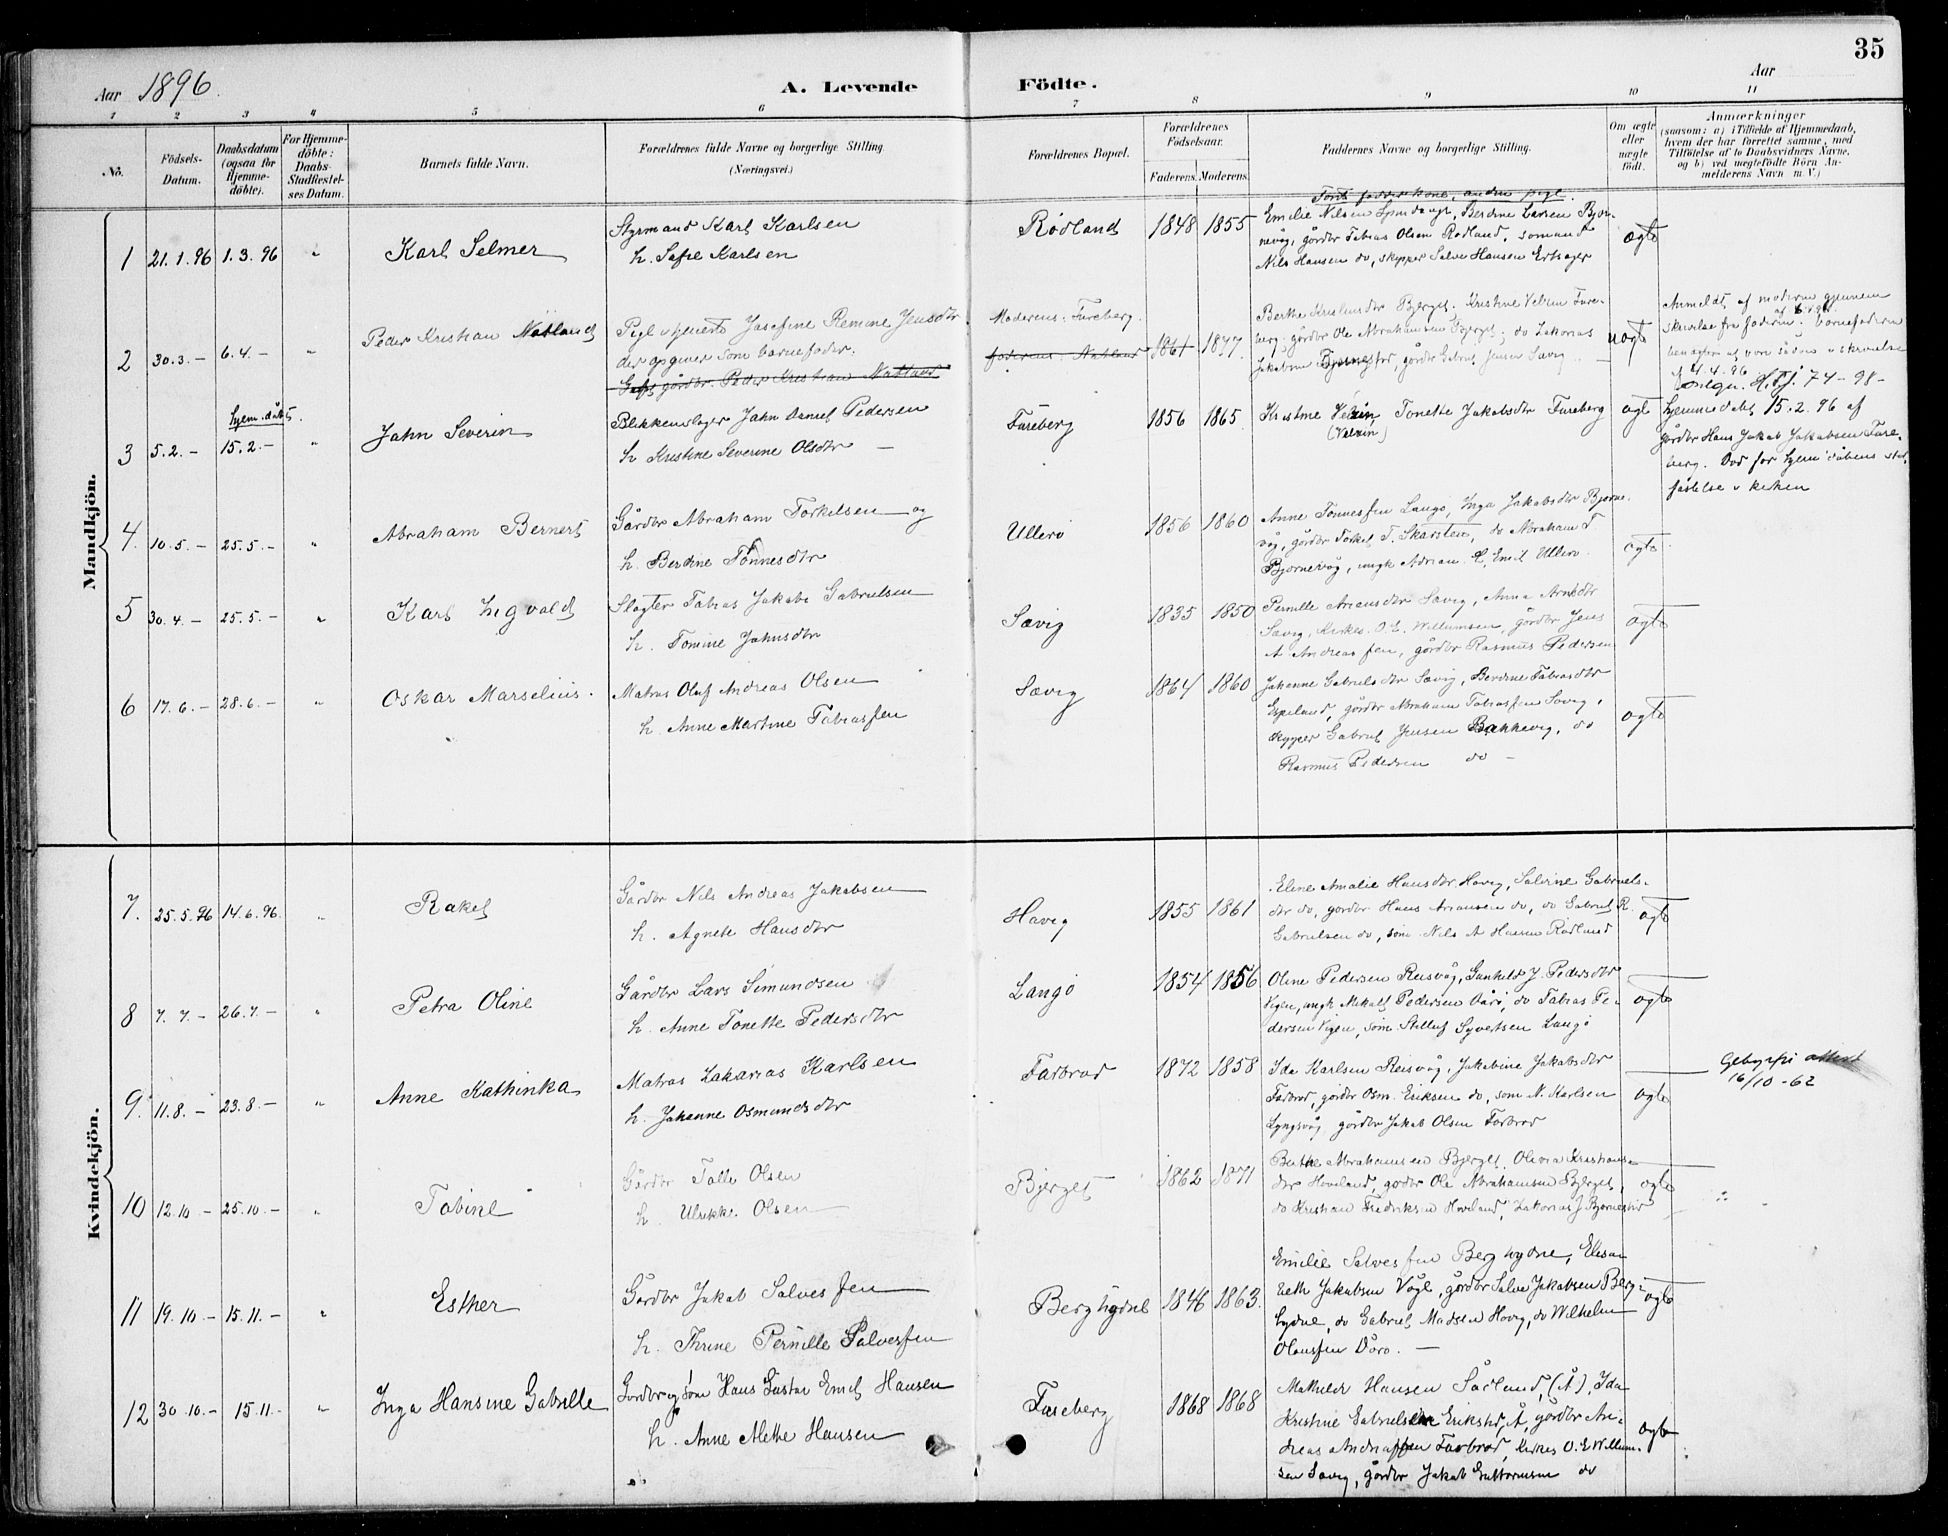 35
Aar 1896. A. Levende Födte. Aar
1 2 3 4 5 6 7 8 9 10 11
No. Födsels-Datum. Daabsdatum (ogsaa for Hjemmedöbte). For Hjemmedöbte: Daabs-Stadfestelses Datum. Barnets fulde Navn. Forældrenes fulde Navne og borgerlige Stilling (Næringsvei.) Forældrenes Bopæl. Forældrenes Födselsaar. Faderens. Moderens. Faddernes Navne og borgerlige Stilling. Om ægte eller uægte födt. Anmærkninger
(saasom: a) i Tilfælde af Hjemmedaab, hvem der har forrettet samme, med Tilföielse af to Daabsvidners Navne, og b) ved uægtefödte Börn Anmelderens Navn m. V.)
Mandkjön.
fadder kone, anden pige.
1 21.1.96 1.3.96 " Karl Selmer Styrmand Karl Karlsen Rødland 1848 1855 Emilie Nilsen Berdine Larsen Bjor-
h. Sofie Karlsen nevåg, gårdbr Tobias Olsen Rødland, sømand ægte
Nils Hansen do, skipper Salve Hansen
2 30.3.- 6.4.- " Peder Kristian Natland Pige i tjeneste Josefine Remine Jensdtr Moderens: Fureberg. 1861 1877. uægte Anmeldt af moderen gjennem
der opgiver som barnefader: faderens: Natland berg, gårdbr Ole Abrahamsen Bjerget, do Zakarias skrivelse fra faderen. Barnefaderen
Gift gårdbr. Peder Kristian Natland Jakobsen Bjørnestad, gårdbr Gabriel Jensen Sævig 4.4.96
74-98-
hjem.døbt.
3 5.2.- 15.2.- " Jahn Severin Blikkenslager Jahn Daniel Pedersen Fureberg 1856 1865 Kristine Tonette Jakobsdtr Fureberg ægte hjemmedøbt 15.2.96 af
h. Kristine Severine Olsdtr - gårdbr Hans Jakob Jakobsen Fure-
berg. Død før hjemmedåbens stad-
fæstelse i kirken
4. 10.5.- 25.5.- " Abraham Bernert Gårdbr Abraham Torkelsen og Ullerø 1856 1860 Anne Tønnesen Langø, Inga Jakobsdtr Bjørne-
h. Berdine Tønnesdtr våg, gårdbr Torkel T. Skarstein, do Abraham T. ægte
Bjørnevåg, ungk Adrian Emil Ullerø.
5 30.4.- 25.5.- " Karl Sigvald Slagter Tobias Jakob Gabrielsen Sævig 1835 1850 Pernille Ariansdtr Sævig, Anna Arnsdtr ægte
h. Tomine Jahnsdtr Sævig, Kirkes. O.E. Willumsen, gårdbr Jens
A Andreassen, gårdbr Rasmus Pedersen
6 17.6.- 28.6.- " Oskar Marselius. Matros Oluf Andreas Olsen Sævig 1864 1860 Johanne Gabrielsdtr Sævig, Berdine Tobiasdtr
h. Anne Martine Tobiassen Espeland, gårdbr Abraham Tobiassen Sævig, ægte
skipper Gabriel Jensen Bakkevig, do
Rasmus Pedersen do -
Kvindekjön.
7. 25.5.96 14.6.96. " Rakel Gårdbr Nils Andreas Jakobsen Håvig 1855 1861 Eline Amalie Hansdtr Håvig, Salvine Gabriels-
h. Agnete Hansdtr dtr do, gårdbr Hans Ariansen do, do Gabriel R. ægte
Gabrielsen do, søm. Nils A Hansen Rødland
8 7.7.- 26.7.- " Petra Oline Gårdbr Lars Simundsen Langø 1854 1856 Oline Pedersen Reisvåg, Gunhild J. Pedersdtr
h. Anne Tonette Pedersdtr Vigen, ungk Mikael Pedersen do Tobias Pe- ægte
dersen Vigen, søm. Syvertsen Langø
9. 11.8.- 23.8.- " Anne Kathinka Matros Zakarias Karlsen Farbrod 1872 1858 Ida Karlsen Reisvåg, Jakobine Jakobsdtr attest
h. Johanne Osmundsdtr Farbrod, gårdbr Osm. Eriksen do, søm N. Karlsen ægte 16/10-62
Lyngsvåg, gårdbr Jakob Olsen Farbrod
10 12.10- 25.10.- " Tobine Gårdbr Talle Olsen Bjerget 1862 1871 Berthe Abrahamsen Bjerget, Olivia Kristians-
h. Ulrikke Olsen dtr Hoveland, gårdbr Ole Abrahamsen Bjerget, ægte
do Kristian Fredriksen Hoveland, Zakarias J. Bjørnestad
11 19.10- 15.11.- " Esther Gårdbr Jakob Salvessen Berghydne 1846 1863. Emilie Salvessen Berghydne, Elisa-
h. Thrine Pernille Salvessen beth Jakobsen Våge, gårdbr Salve Jakobsen Berg- ægte
hydne, do Gabriel Madsen Håvig, do Wilhelm
Olaussen Dårø. -
12 30.10.- 15.11- " Inga Hansine Gabrielle Gårdbr og søm Hans Gustav Emil Hansen Fureberg 1868 1868 Mathilde Hansen Sørland, (Å), Ida
h. Anne Alethe Hansen Kristine Gabrielsen Erikstad, Å, gårdbr An- ægte
dreas Andreassen Farbrod, Kirkes O.E Willum-
sen Sævig, gårdbr Jakob Guttormsen do